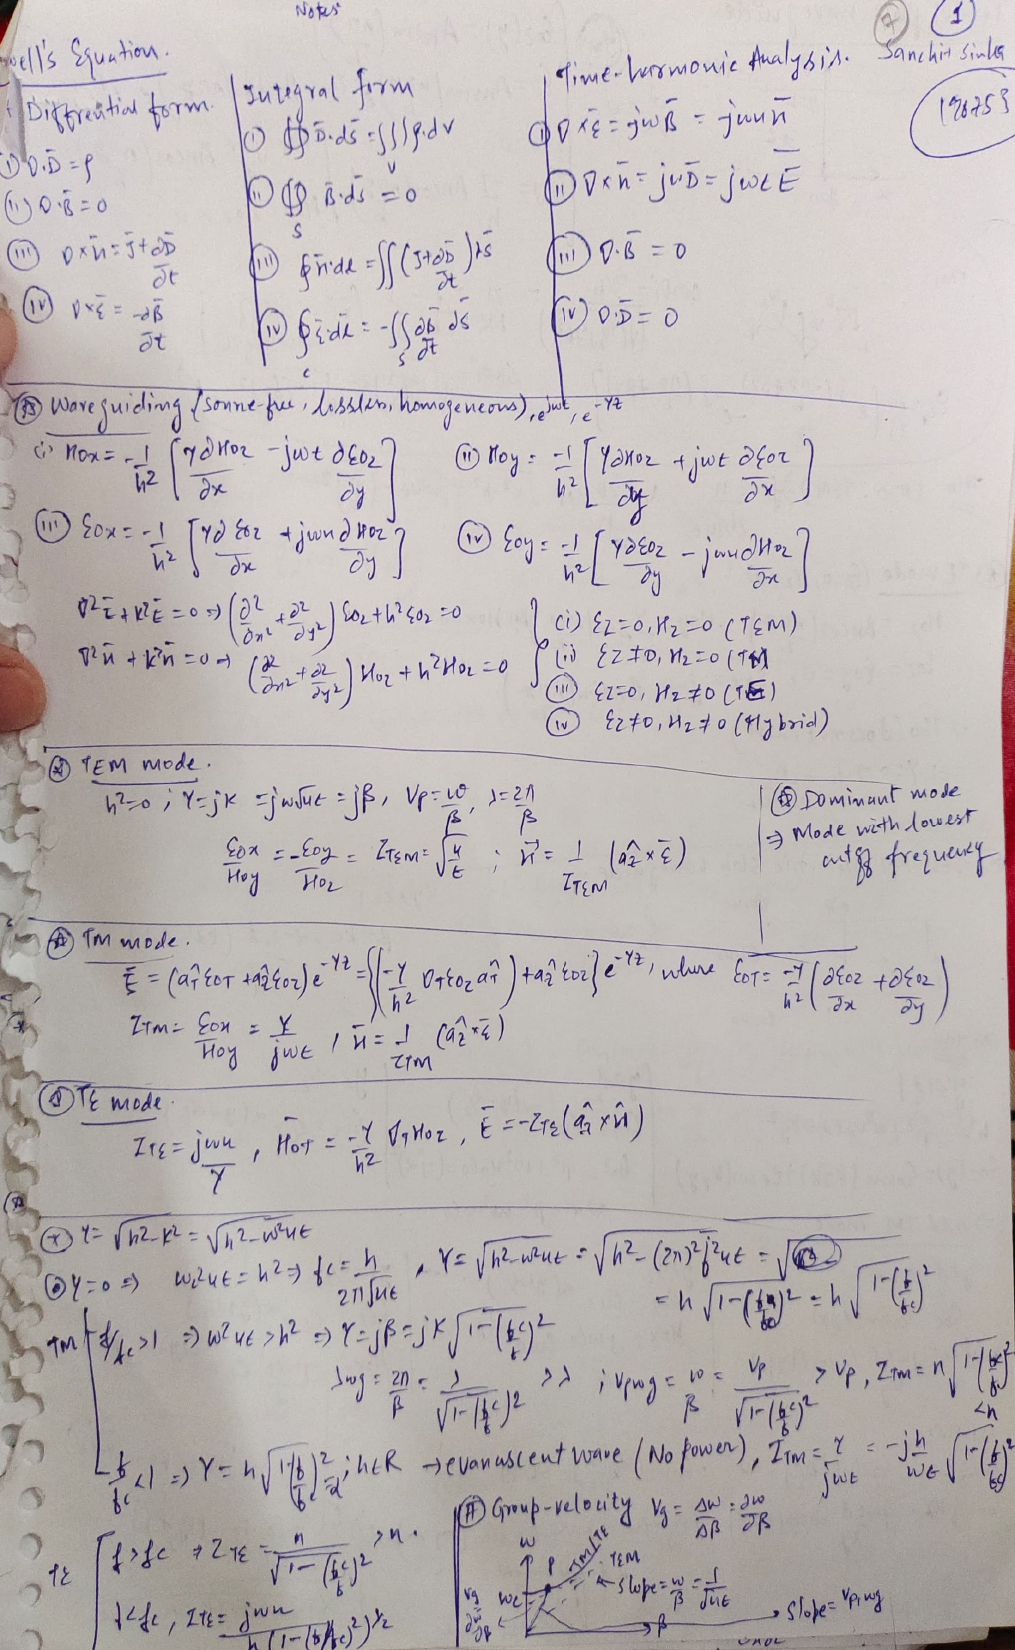 Notes
7 1
well's Equation.
Sanchit Sinha
Diffrential form.
(i) ∇.D̄ = ρ
(ii) ∇.B̄ = 0
(iii) ∇×H̄ = J̄ + ∂D̄/∂t
(iv) ∇×Ē = -∂B̄/∂t
Integral form
(i) ∯ D̄.ds̄ = ∭ ρ.dv
(ii) ∯ B̄.ds̄ = 0
(iii) ∮H̄.dl = ∬(J̄ + ∂D̄/∂t)ds̄
(iv) ∮Ē.dl̄ = -∬ ∂B̄/∂t ds̄
Time-harmonic Analysis.
(i) ∇×Ē = jωB̄ = jωμH̄
(ii) ∇×H̄ = jωD̄ = jωεĒ
(iii) ∇.B̄ = 0
(iv) ∇.D̄ = 0
Waveguiding (source-free, lossless, homogeneous), e^jωt, e^-γz
(i) Hox = -1/h² [γ∂Hoz/∂x - jωε ∂Eoz/∂y]
(ii) Hoy = -1/h² [γ∂Hoz/∂y + jωε ∂Eoz/∂x]
(iii) Eox = -1/h² [γ∂Eoz/∂x + jωμ∂Hoz/∂y]
(iv) Eoy = -1/h² [γ∂Eoz/∂y - jωμ∂Hoz/∂x]
∇²Ē + k²Ē = 0 ⇒ (∂²/∂x² + ∂²/∂y²) Eoz + h²Eoz = 0
∇²H̄ + k²H̄ = 0 ⇒ (∂²/∂x² + ∂²/∂y²) Hoz + h²Hoz = 0
(i) Ez=0, Hz=0 (TEM)
(ii) Ez≠0, Hz=0 (TM)
(iii) Ez=0, Hz≠0 (TE)
(iv) Ez≠0, Hz≠0 (Hybrid)
TEM mode.
h²=0 ; γ=jk = jω√με = jβ, Vp = ω/β, λ = 2π/β
Eox/Hoy = -Eoy/Hoz = ZTEM = √μ/ε ; H̄ = 1/ZTEM (âz×Ē)
Dominant mode
⇒ Mode with lowest
cutoff frequency
TM mode.
Ē = (âT EoT + âz Eoz)e^-γz = {(-γ/h² ∇T Eoz âT) + âz Eoz} e^-γz, where EoT = -γ/h² (∂Eoz/∂x + ∂Eoz/∂y)
ZTM = Eox/Hoy = γ/jωε, H̄ = 1/ZTM (âz×Ē)
TE mode.
ZTE = jωμ/γ, H̄oT = -γ/h² ∇T Hoz, Ē = -ZTE(âz×H̄)
γ = √h²-k² = √h²-ω²με
γ=0 ⇒ ωc²με = h² ⇒ fc = h/2π√με, γ = √h²-ω²με = √h²-(2π)²f²με
= h√1-(f/fc)² = h√1-(f/fc)²
TM f/fc >1 ⇒ ω²με > h² ⇒ γ = jβ = jk√1-(fc/f)²
λwg = 2π/β = λ/√1-(fc/f)² >λ ; Vpwg = ω/β = Vp/√1-(fc/f)² > Vp, ZTM = η√1-(fc/f)² <η
f/fc <1 ⇒ γ = h√1-(f/fc)² = α ; h∈R → evanuscent wave (No power), ZTM = γ/jωε = -jh/ωε √1-(f/fc)²
TE f>fc ⇒ ZTE = η/√1-(fc/f)² >η.
f<fc, ZTE = jωμ/h(1-(f/fc)²)^1/2
Group-velocity Vg = Δω/Δβ = ∂ω/∂β
ω
P
TM/TE
TEM
slope = ω/β = 1/√με
ωc
β
Slope = Vp,wg